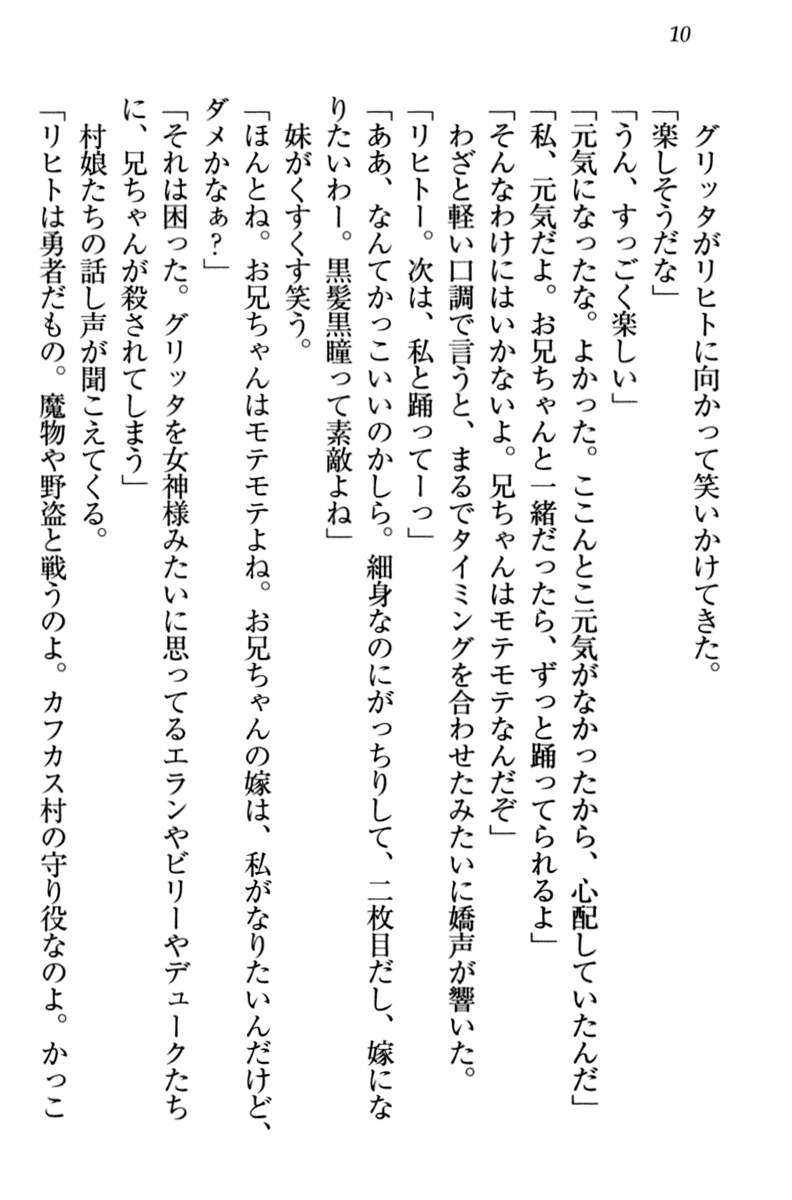 10
グリッタがリヒトに向かって笑いかけてきた。
「楽しそうだな」
「うん、すっごく楽しい」
「元気になったな。よかった。ここんとこ元気がなかったから、心配していたんだ」
「私、元気だよ。お兄ちゃんと一緒だったら、ずっと踊ってられるよ」
「そんなわけにはいかないよ。兄ちゃんはモテモテなんだぞ」
わざと軽い口調で言うと、まるでタイミングを合わせたみたいに嬌声が響いた。
「リヒトー。次は、私と踊ってーっ」
「ああ、なんてかっこいいのかしら。細身なのにがっちりして、二枚目だし、嫁にな
りたいわー。黒髪黒瞳って素敵よね」
妹がくすくす笑う。
「ほんとね。お兄ちゃんはモテモテよね。お兄ちゃんの嫁は、私がなりたいんだけど、
ダメかなぁ?」
「それは困った。グリッタを女神様みたいに思ってるエランやビリーやデュークたち
に、兄ちゃんが殺されてしまう」
村娘たちの話し声が聞こえてくる。
「リヒトは勇者だもの。魔物や野盗と戦うのよ。カフカス村の守り役なのよ。かっこ